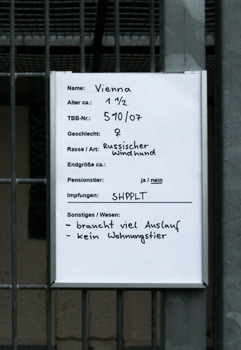 Name: Vienna
Alter ca.: 1 1/2
TBB-Nr.: 510/07
Geschlecht: ♀
Rasse / Art: Russischer
Windhund
Endgröße ca.:
Pensionstier: ja / nein
Impfungen: SHPPLT
Sonstiges / Wesen:
- braucht viel Auslauf
- kein Wohnungstier